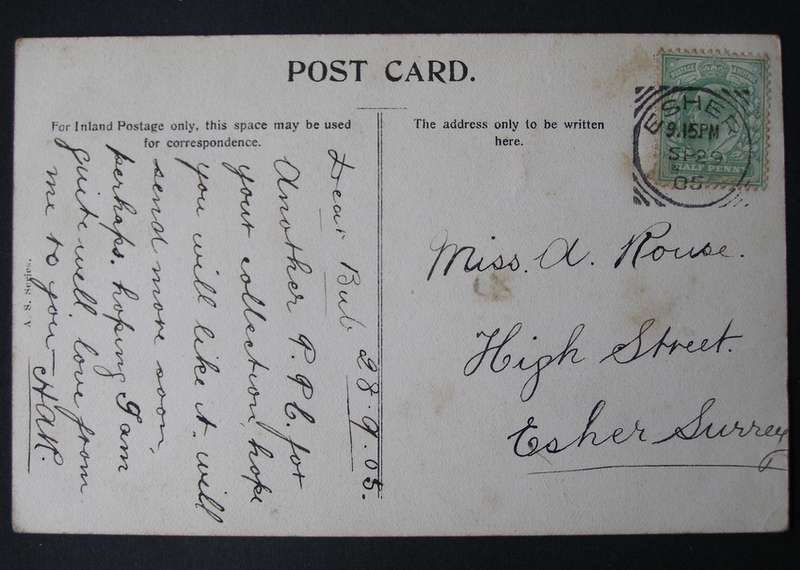 POST CARD.
For Inland Postage only, this space may be used
for correspondence.
The address only to be written
here.
ESHER
9.15PM
SP 29
05
HALF PENNY
Dear Bub 28.9.05.
Another P.P.C. for
your collection, hope
you will like it. will
send more soon,
perhaps. hoping I am
quite well. love from
me to you — HAR.
Miss. A. Rouse.
High Street.
Esher Surrey